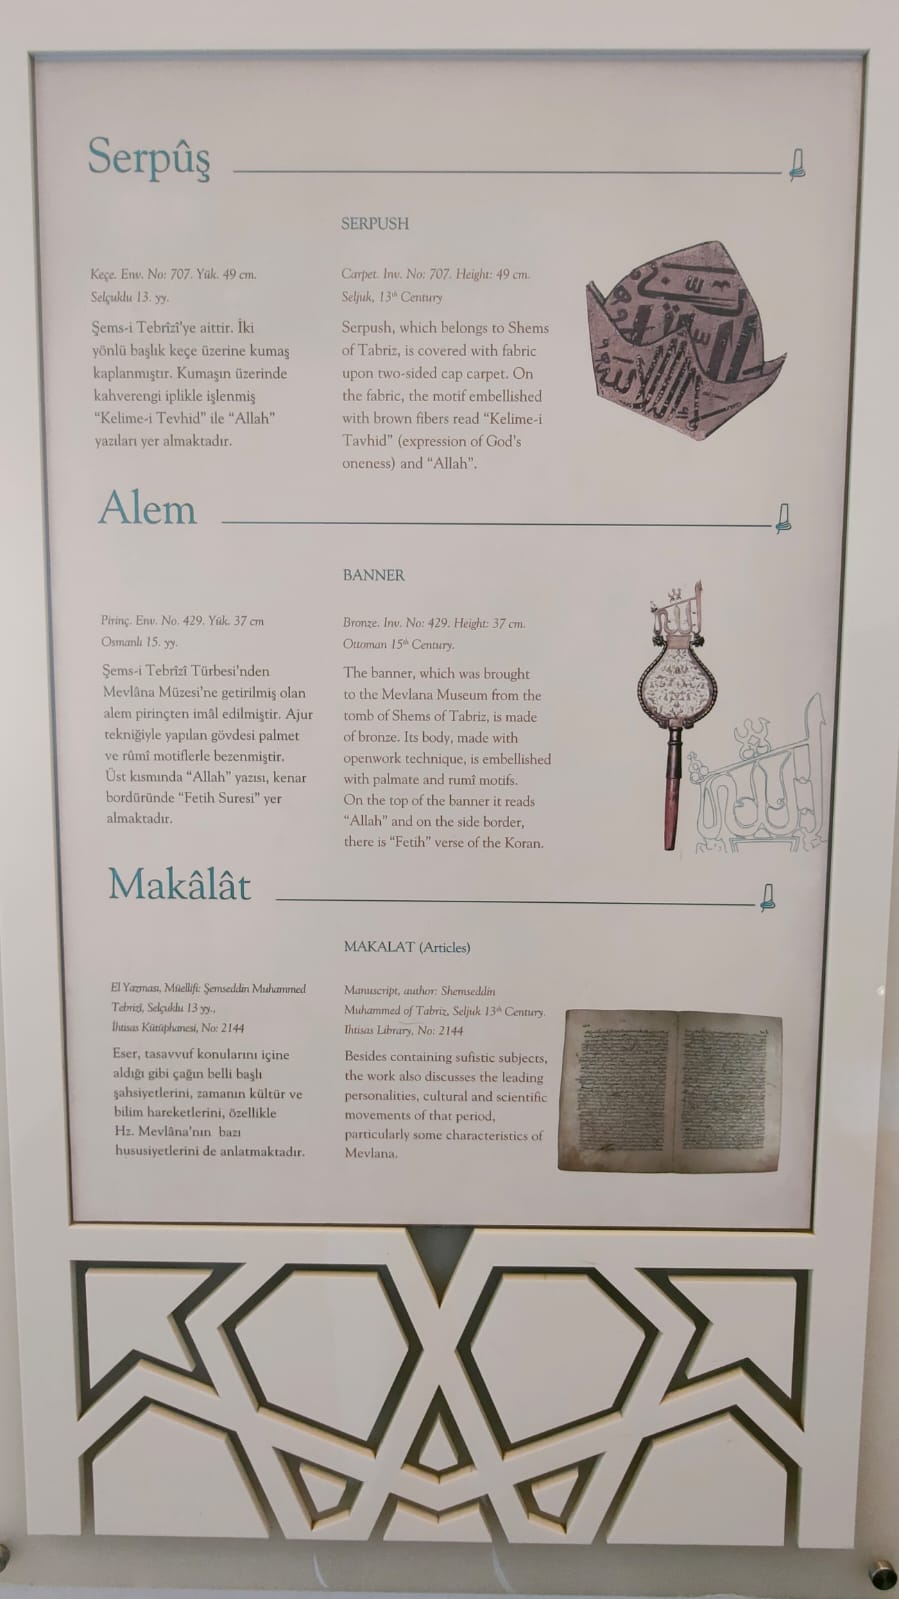 Serpûş
SERPUSH
Keçe. Env. No: 707. Yük. 49 cm.
Selçuklu 13. yy.
Şems-i Tebrîzî'ye aittir. İki
yönlü başlık keçe üzerine kumaş
kaplanmıştır. Kumaşın üzerinde
kahverengi iplikle işlenmiş
“Kelime-i Tevhid” ile “Allah”
yazıları yer almaktadır.
Carpet. Inv. No: 707. Height: 49 cm.
Seljuk, 13th Century
Serpush, which belongs to Shems
of Tabriz, is covered with fabric
upon two-sided cap carpet. On
the fabric, the motif embellished
with brown fibers read “Kelime-i
Tavhid” (expression of God's
oneness) and “Allah”.
Alem
BANNER
Pirinç. Env. No. 429. Yük. 37 cm
Osmanlı 15. yy.
Şems-i Tebrîzî Türbesi'nden
Mevlâna Müzesi'ne getirilmiş olan
alem pirinçten imâl edilmiştir. Ajur
tekniğiyle yapılan gövdesi palmet
ve rûmî motiflerle bezenmiştir.
Üst kısmında “Allah” yazısı, kenar
bordüründe “Fetih Suresi” yer
almaktadır.
Bronze. Inv. No: 429. Height: 37 cm.
Ottoman 15th Century.
The banner, which was brought
to the Mevlana Museum from the
tomb of Shems of Tabriz, is made
of bronze. Its body, made with
openwork technique, is embellished
with palmate and rumî motifs.
On the top of the banner it reads
“Allah” and on the side border,
there is “Fetih” verse of the Koran.
Makâlât
MAKALAT (Articles)
El Yazması, Müellifi: Şemseddin Muhammed
Tebrizî, Selçuklu 13 yy.,
İhtisas Kütüphanesi, No: 2144
Eser, tasavvuf konularını içine
aldığı gibi çağın belli başlı
şahsiyetlerini, zamanın kültür ve
bilim hareketlerini, özellikle
Hz. Mevlâna'nın bazı
hususiyetlerini de anlatmaktadır.
Manuscript, author: Shemseddin
Muhammed of Tabriz, Seljuk 13th Century.
Ihtisas Library, No: 2144
Besides containing sufistic subjects,
the work also discusses the leading
personalities, cultural and scientific
movements of that period,
particularly some characteristics of
Mevlana.